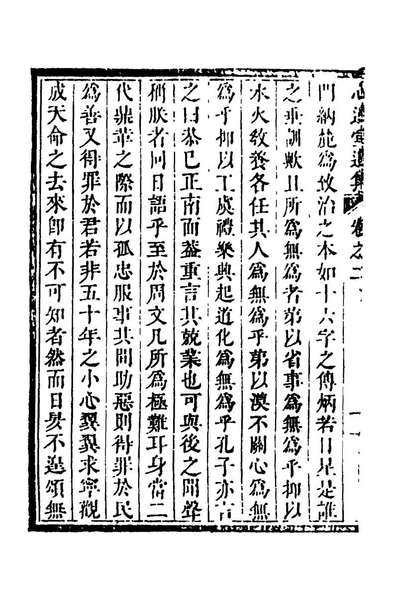 心遠堂遺集 卷之二
門納施爲致治之本如十六字之傳炳若日星是誰
之垂訓歟且所爲無爲者第以省事爲無爲乎抑以
水火敎養各任其人爲無爲乎第以漠不關心爲無
爲乎抑以工虞禮樂興起道化爲無爲乎孔子亦言
之曰恭已正南面蓋重言其兢業也可與後之聞聲
稱朕者同日語乎至於周文凡所爲極難耳身當二
代鼎革之際而以孤忠服事其間助惡則得罪於民
爲善又得罪於君若非五十年之小心翼翼求寧觀
成天命之去來卽有不可知者然而日昃不遑頌無